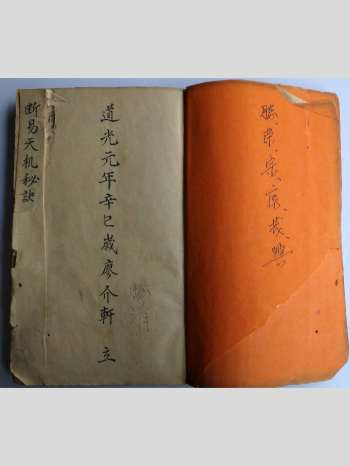 荣、宗、興
道光元年辛巳歲廖介軒 立
断易天机秘訣